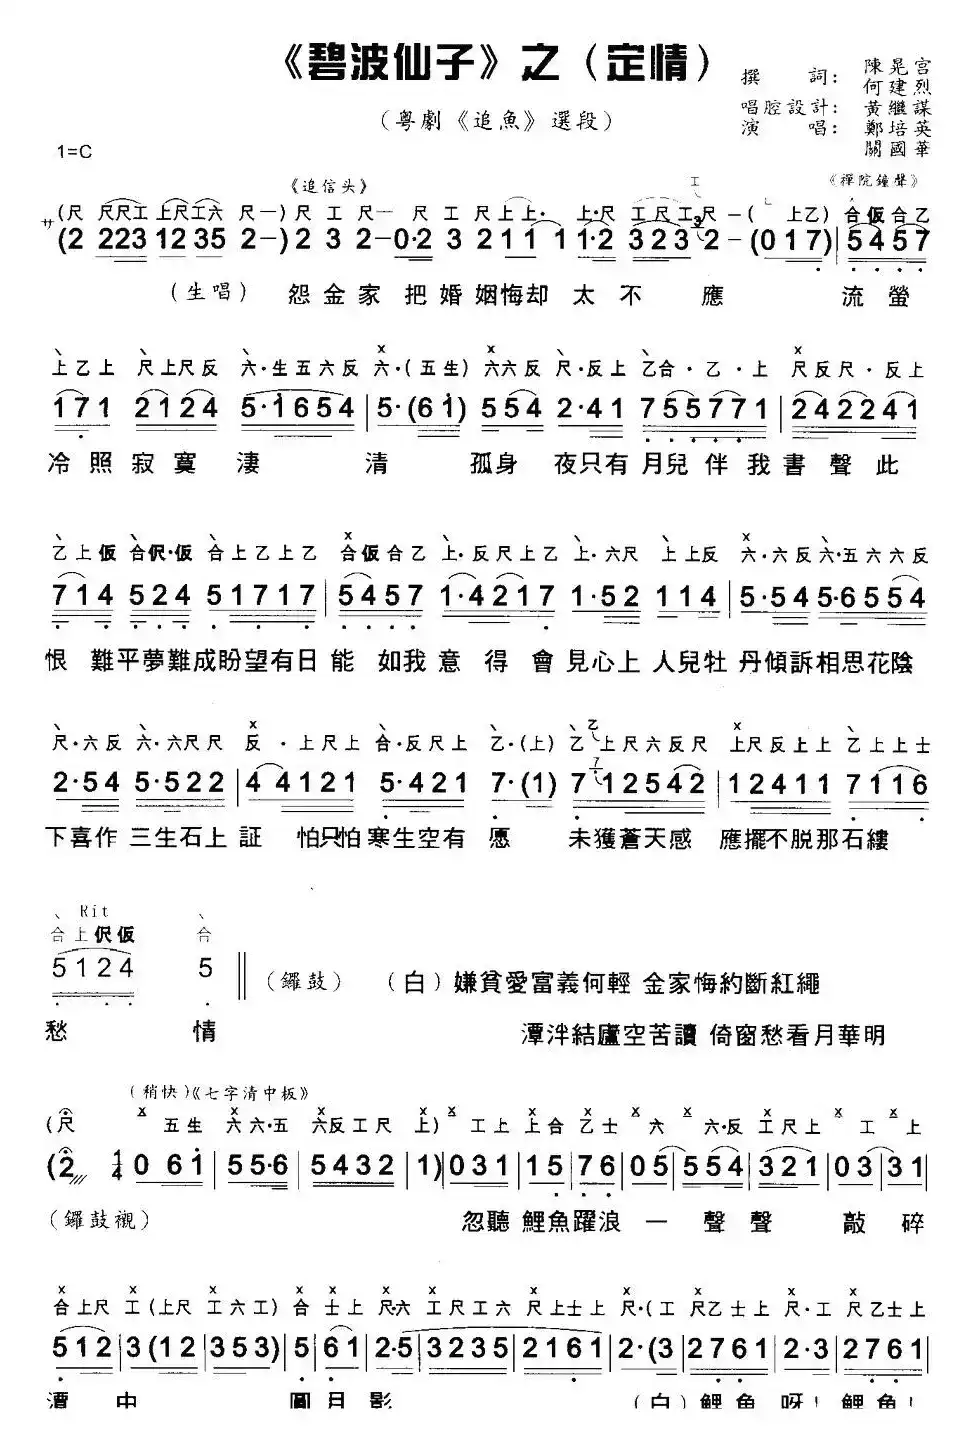 《碧波仙子》之（定情）
（粤劇《追魚》選段）
撰　詞：陳晃宫
何建烈
唱腔設計：黄繼謀
演　唱：鄭培英
關國華
1=C
《追信头》
《禪院鐘聲》
サ
(尺 尺尺工 上尺工六 尺一) 尺 工 尺一 尺 工 尺上上· 上·尺 工尺工尺一 ( 上乙) 合仮合乙
(2 223 1235 2-) 2 3 2-0·2 3 211 11·2 323 2-(017) | 5457
（生唱） 怨金家把婚姻悔却太不應 流螢
上乙上 尺上尺反 六·生五六反 六·(五生) 六六反 尺·反上 乙合·乙·上 尺反尺·反上
171 2124 5·1654 | 5·(61) 554 2·41 755771 | 242241
冷照寂寞淒清孤身夜只有月兒伴我書聲此
乙上仮 合伬·仮 合上乙上乙 合仮合乙 上·反尺上乙 上·六尺 上上反 六·六反六·五六六反
714 524 51717 | 5457 1·4217 1·52 114 | 5·54 5·6554
恨難平夢難成盼望有日能如我意得會見心上人兒牡丹傾訴相思花陰
尺·六反 六·六尺尺 反·上尺上 合·反尺上 乙·(上) 乙上尺六反尺 上尺反上上 乙上上士
2·54 5·522 | 4 4121 5·421 7·(1) | 7 12542 | 12411 7116
下喜作三生石上証怕只怕寒生空有愿未獲蒼天感應擺不脱那石縷
Rit
合上伬仮 合
5124 5
（鑼鼓） （白）嫌貧愛富義何輕 金家悔約斷紅繩
愁情 潭泮結廬空苦讀 倚窗愁看月華明
（稍快）《七字清中板》
(尺 五生 六六·五 六反工尺 上) 工上 上合 乙士 六 六·反 工尺上 工 上
(2 1/4 0 61 | 55·6 | 5432 | 1) | 031 | 15 | 76 | 05 | 554 | 321 | 03 | 31
（鑼鼓襯） 忽聽鯉魚躍浪一聲聲敲碎
合上尺 工(上尺 工六工) 合 士上 尺·六 工尺工六 尺上士上 尺·(工 尺乙士上 尺·工 尺乙士上
512 | 3(12 | 353) | 5 | 61 | 2·5 | 3235 | 2161 | 2·(3 | 2761 | 2·3 | 2761
潭中圓月影 （白）鯉魚呀！鯉魚！